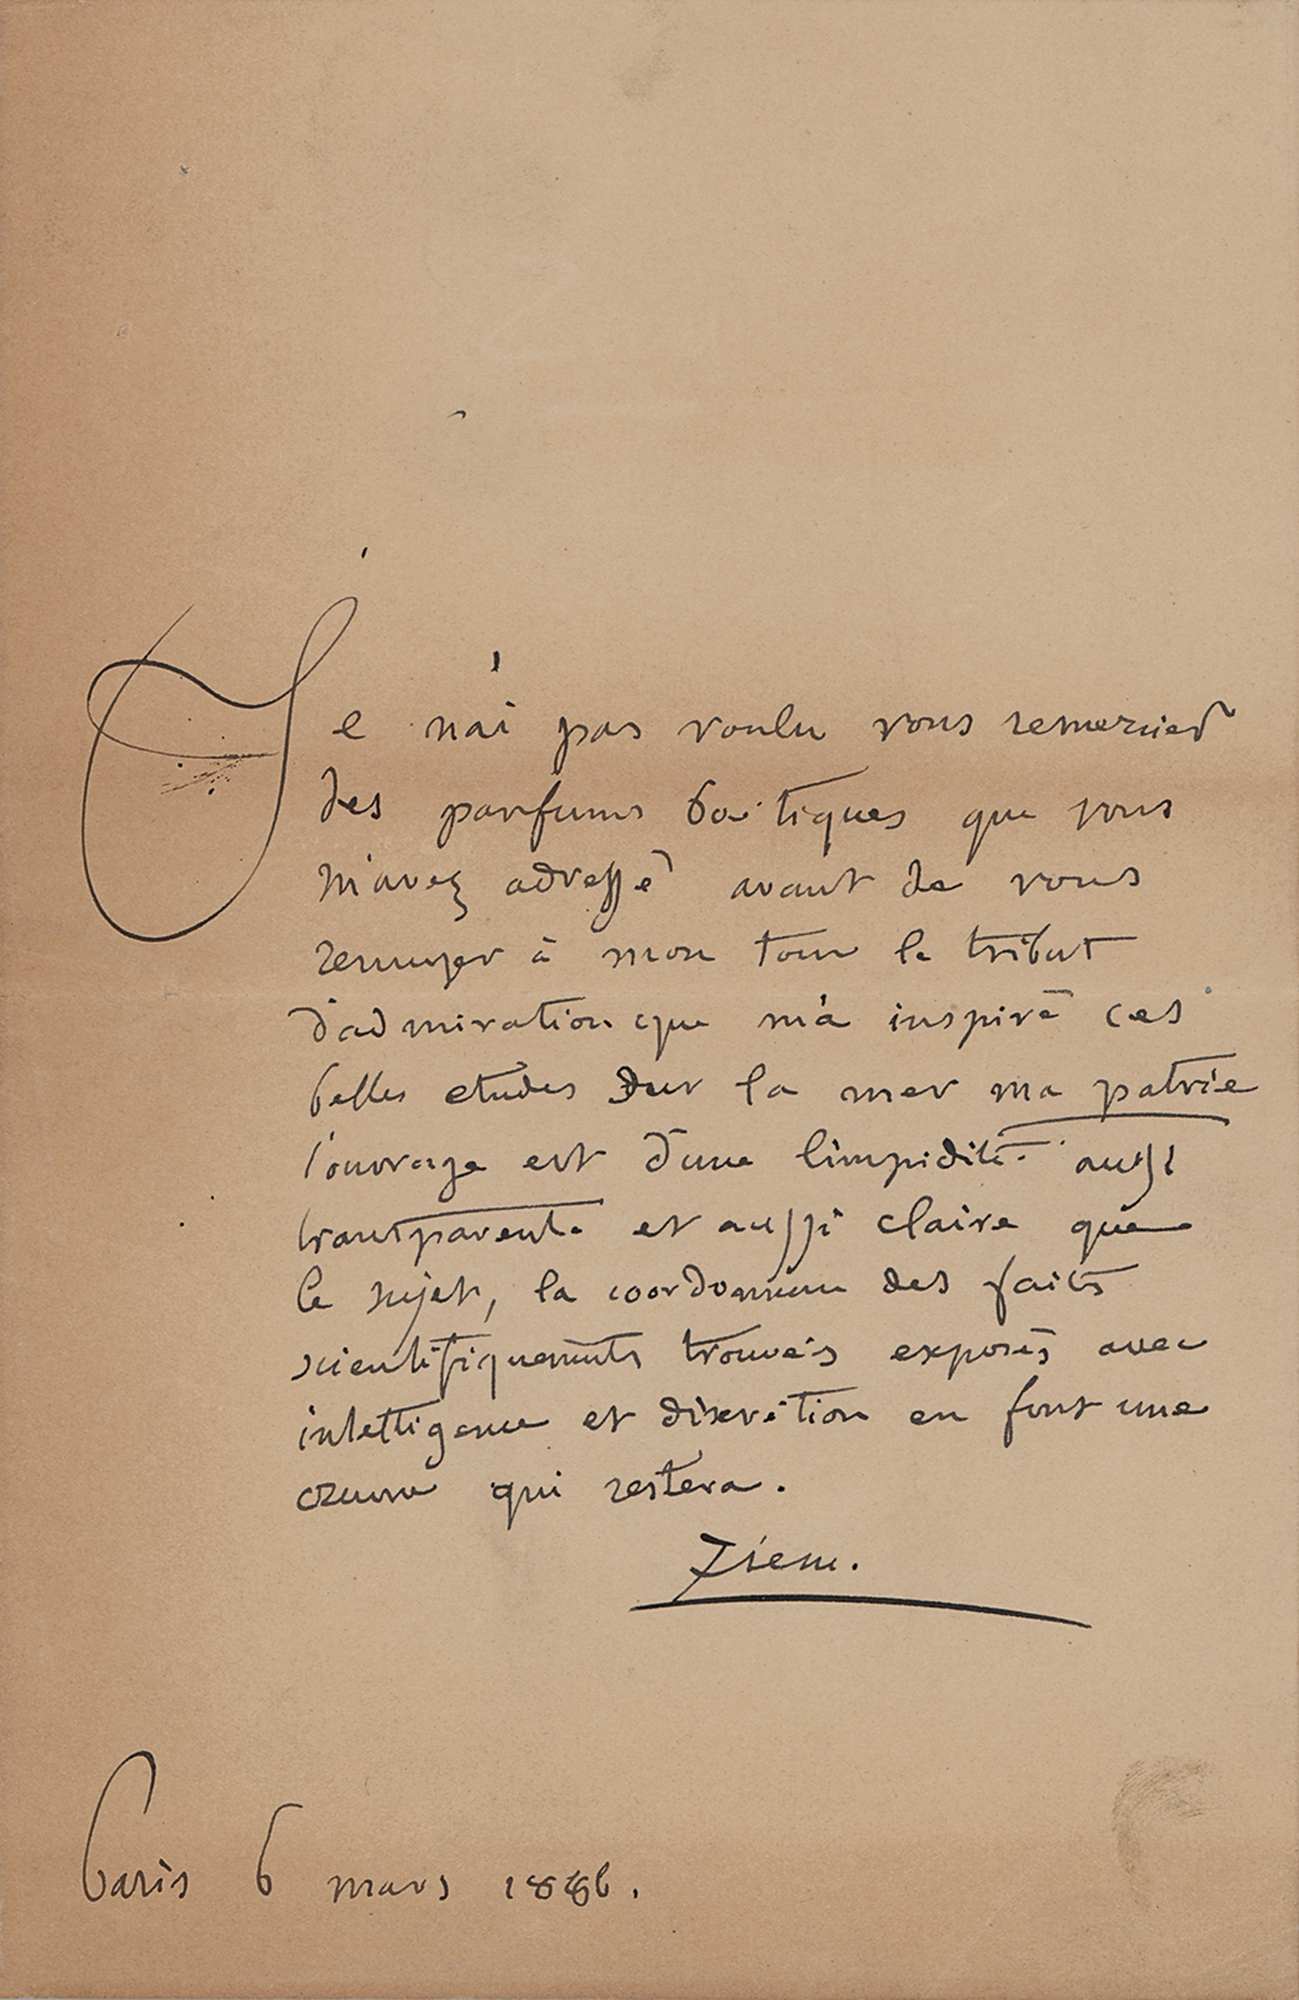 Je n'ai pas voulu vous remercier
des parfums que vous
m'avez adressé avant de vous
renvoyer à mon tour le tribut
d'admiration que m'a inspiré ces
belles etudes sur la mer ma patrie
l'ouvrage est d'une limpidité aussi
transparente et aussi claire que
le sujet, la des faits
scientifiquements trouvés exposés avec
intelligence et discrétion en font une
œuvre qui restera.
Ziem.
Paris 6 mars 1886.